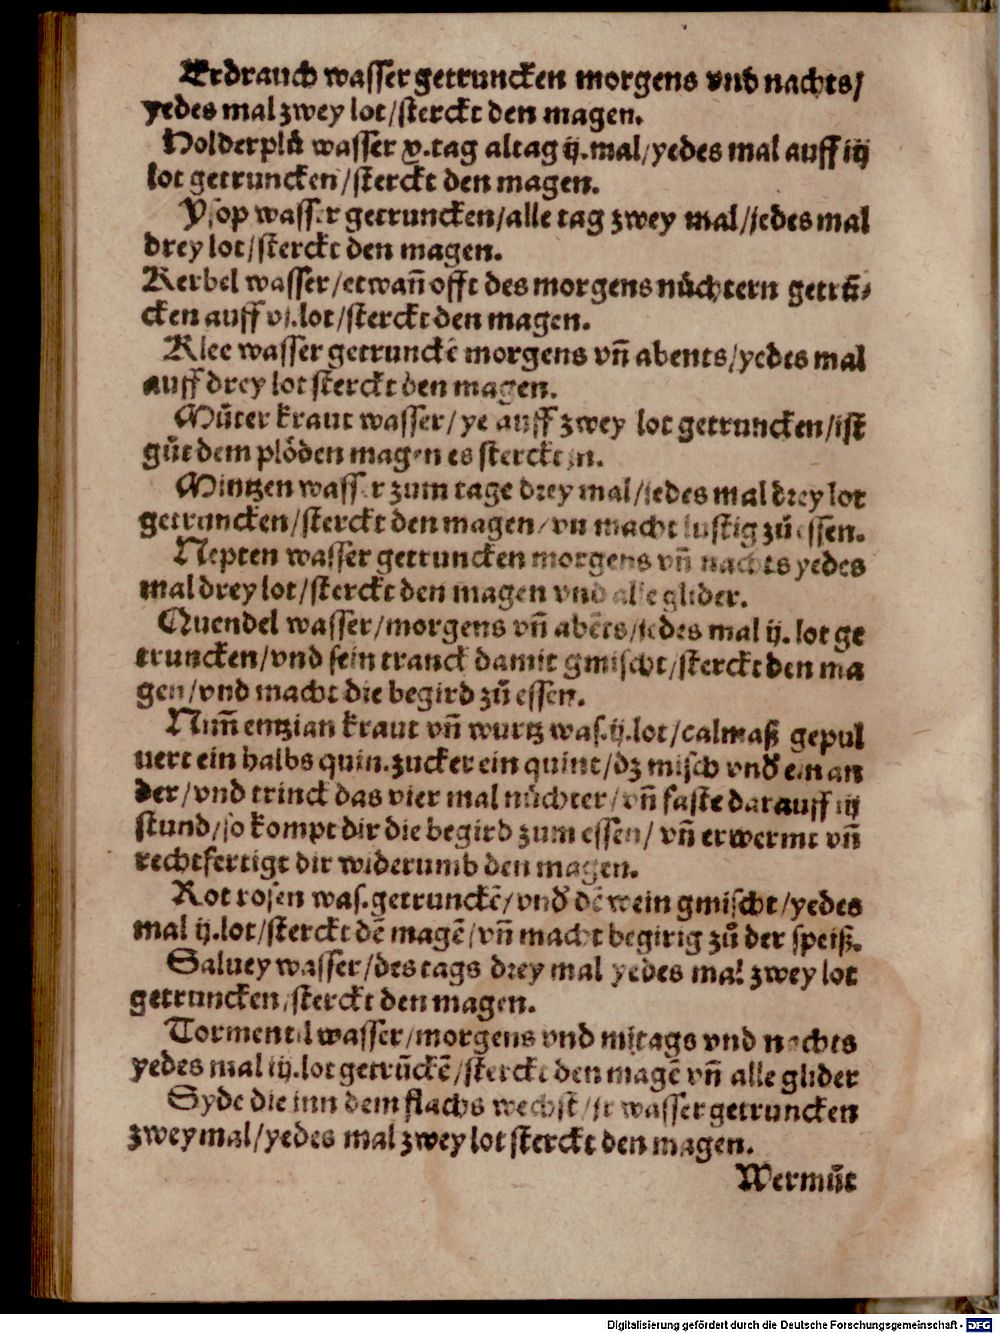 Erdrauch wasser getruncken morgens vnd nachts/
yedes mal zwey lot/sterckt den magen.
Holderplů wasser v.tag altag ij.mal/yedes mal auff iij
lot getruncken/sterckt den magen.
Ysop wasser getruncken/alle tag zwey mal/jedes mal
drey lot/sterckt den magen.
Kerbel wasser/etwañ offt des morgens nůchtern getrū-
cken auff vj.lot/sterckt den magen.
Klee wasser getrunckē morgens vñ abents/yedes mal
auff drey lot sterckt den magen.
Můter kraut wasser/ye auff zwey lot getruncken/ist
gůt dem plöden magen es sterckt jn.
Mintzen wasser zum tage drey mal/jedes mal drey lot
getruncken/sterckt den magen/vn macht lustig zů essen.
Nepten wasser getruncken morgens vñ nachts yedes
mal drey lot/sterckt den magen vnd alle glider.
Quendel wasser/morgens vñ abēts/jedes mal ij. lot ge
truncken/vnd sein tranck damit gmischt/sterckt den ma
gen/vnd macht die begird zů essen.
Nim̃ entzian kraut vñ wurtz was.ij.lot/calmaß gepul
uert ein halbs quin.zucker ein quint/dz misch vnd̄ ein an
der/vnd trinck das vier mal nůchter/vñ faste darauff iij
stund/so kompt dir die begird zum essen/ vñ erwermt vñ
rechtfertigt dir widerumb den magen.
Rot rosen was.getrunckē/vnd̄ dē wein gmischt/yedes
mal ij.lot/sterckt dē magē/vñ macht begirig zů der speiß.
Saluey wasser/des tags drey mal yedes mal zwey lot
getruncken/sterckt den magen.
Tormentil wasser/morgens vnd mitags vnd nachts
yedes mal iij.lot getrūckē/sterckt den magē vñ alle glider
Syde die inn dem flachs wechst/jr wasser getruncken
zwey mal/yedes mal zwey lot sterckt den magen.
Wermůt
Digitalisierung gefördert durch die Deutsche Forschungsgemeinschaft - DFG